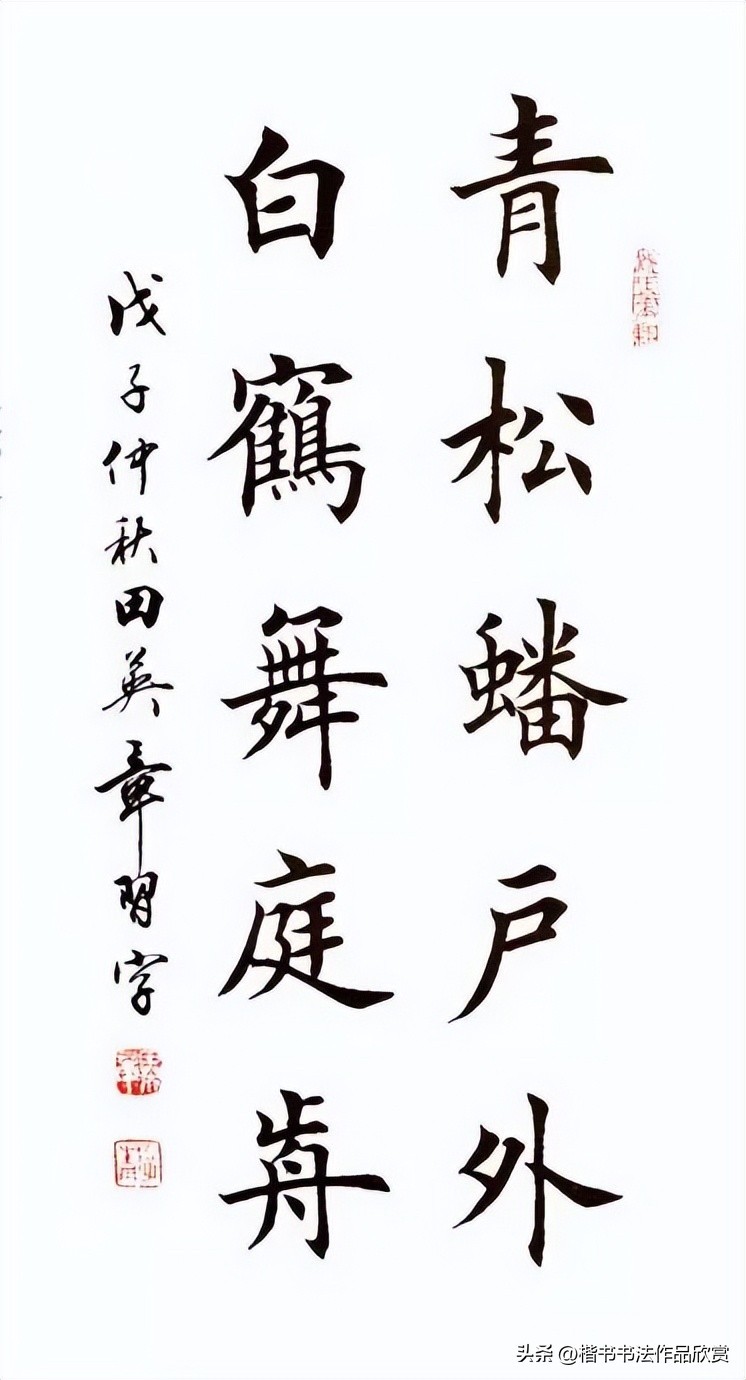 青松蟠户外
白鶴舞庭歬
戊子仲秋田英章習字
头条 @楷书书法作品欣赏